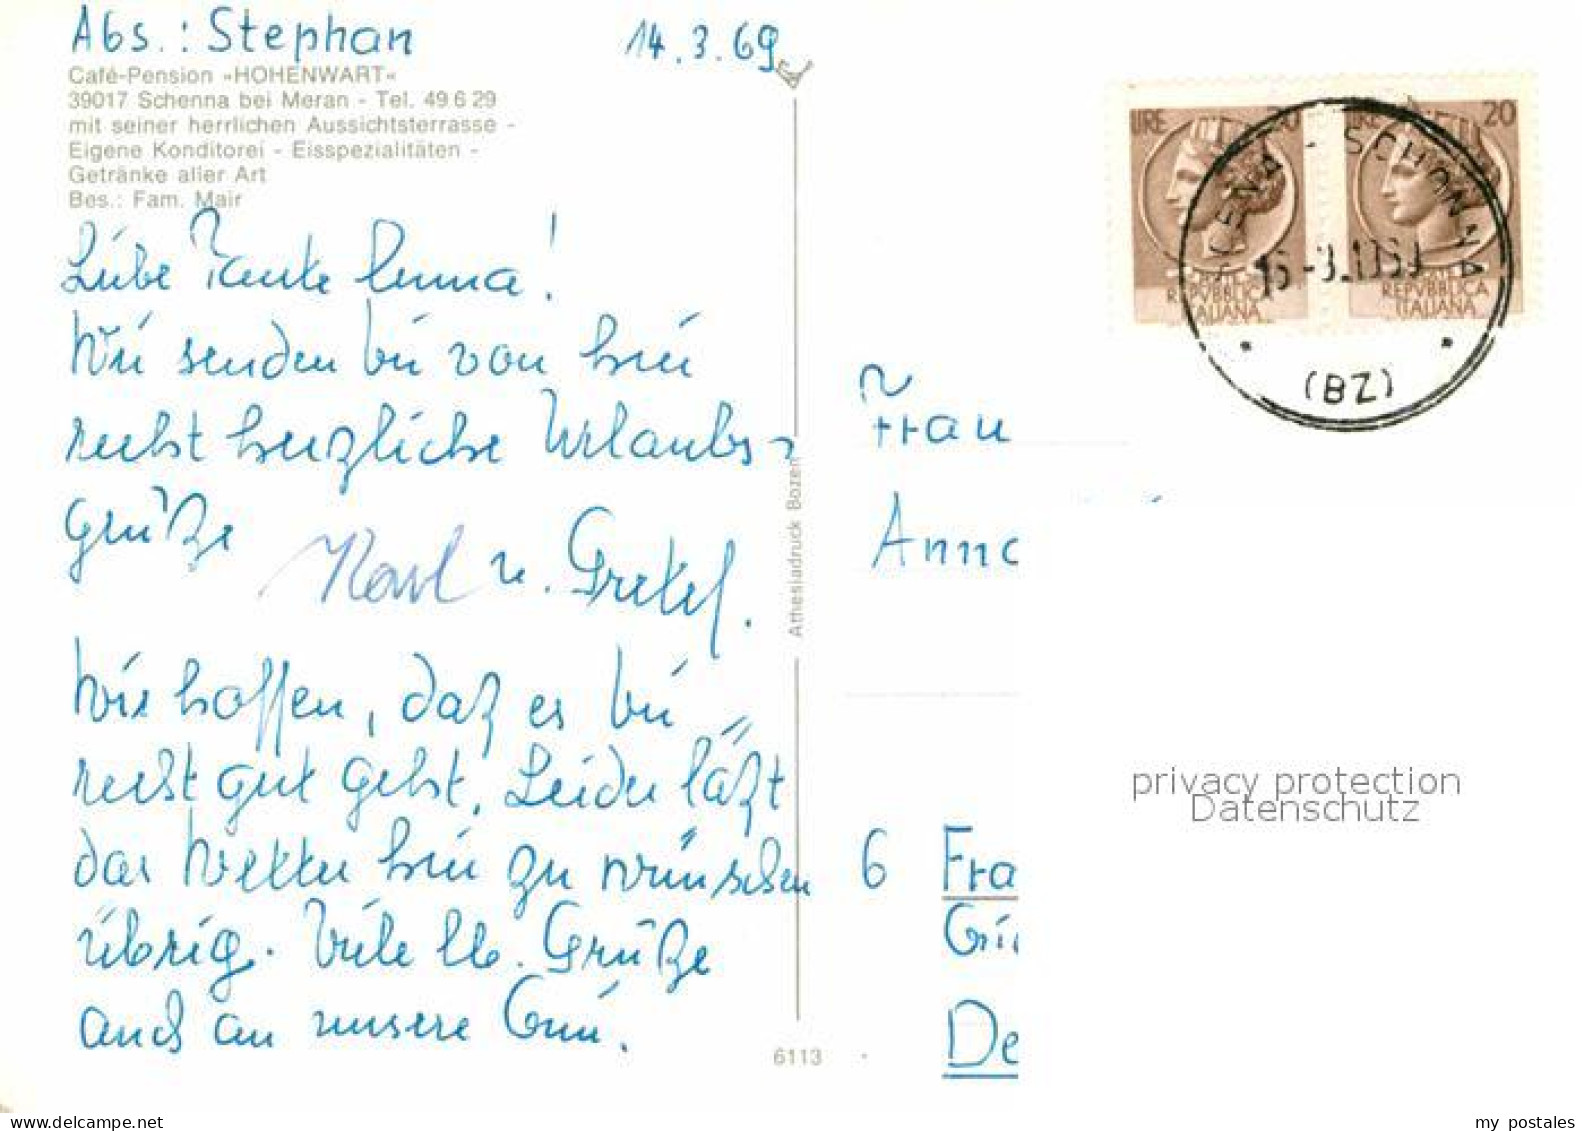 Abs.: Stephan
14.3.69
Café-Pension »HOHENWART«
39017 Schenna bei Meran - Tel. 49 6 29
mit seiner herrlichen Aussichtsterrasse -
Eigene Konditorei - Eisspezialitäten -
Getränke aller Art
Bes.: Fam. Mair
Liebe Tante Anna!
Wir senden Dir von hier
recht herzliche Urlaubs-
grüße
Karl u. Gretel.
Wir hoffen, daß es Dir
recht gut geht. Leider läßt
das Wetter hier zu wünschen
übrig. Viele lb. Grüße
auch an unsere
Athesiadruck Bozen
6113
LIRE 20
LIRE 20
REPVBBLICA
ITALIANA
REPVBBLICA
ITALIANA
SCENA - SCHONNA
(BZ)
Frau
Anna
6 Fra
De
privacy protection
Datenschutz
delcampe.net
my postales